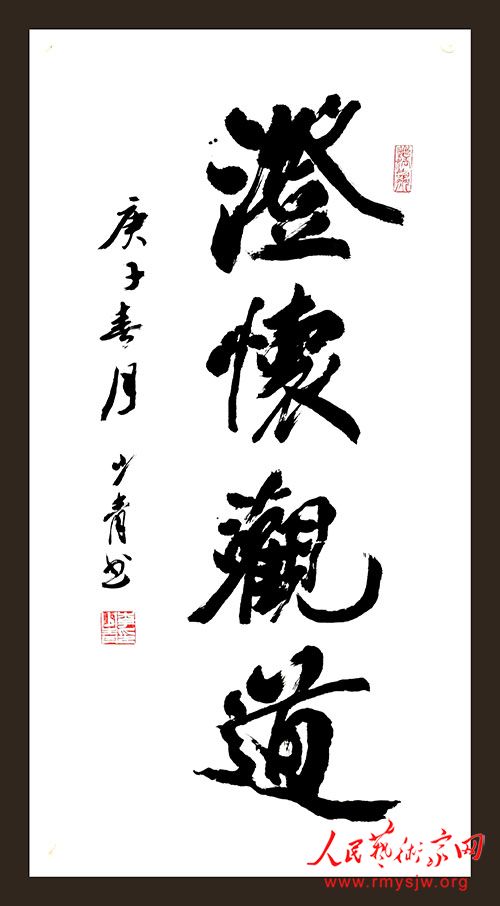 澄懷觀道
庚子春月 少青书
人民藝術家网
www.rmysjw.org